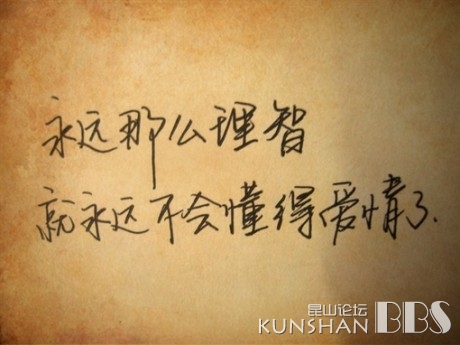 永远那么理智
就永远不会懂得爱情了.
昆山论坛
KUNSHAN BBS